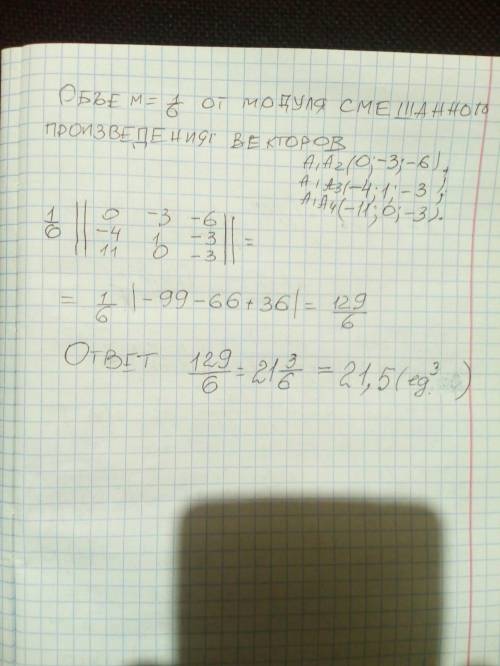 ОБЪЕМ = 1/6 ОТ МОДУЛЯ СМЕШАННОГО
ПРОИЗВЕДЕНИЯ ВЕКТОРОВ
A₁A₂(0; -3; -6),
A₁A₃(-4; 1; -3);
A₁A₄(-11; 0; -3).
1/6 || 0 -3 -6
-4 1 -3
11 0 -3 || =
= 1/6 |-99-66+36| = 129/6
ОТВЕТ 129/6 = 21 3/6 = 21,5 (ед³)